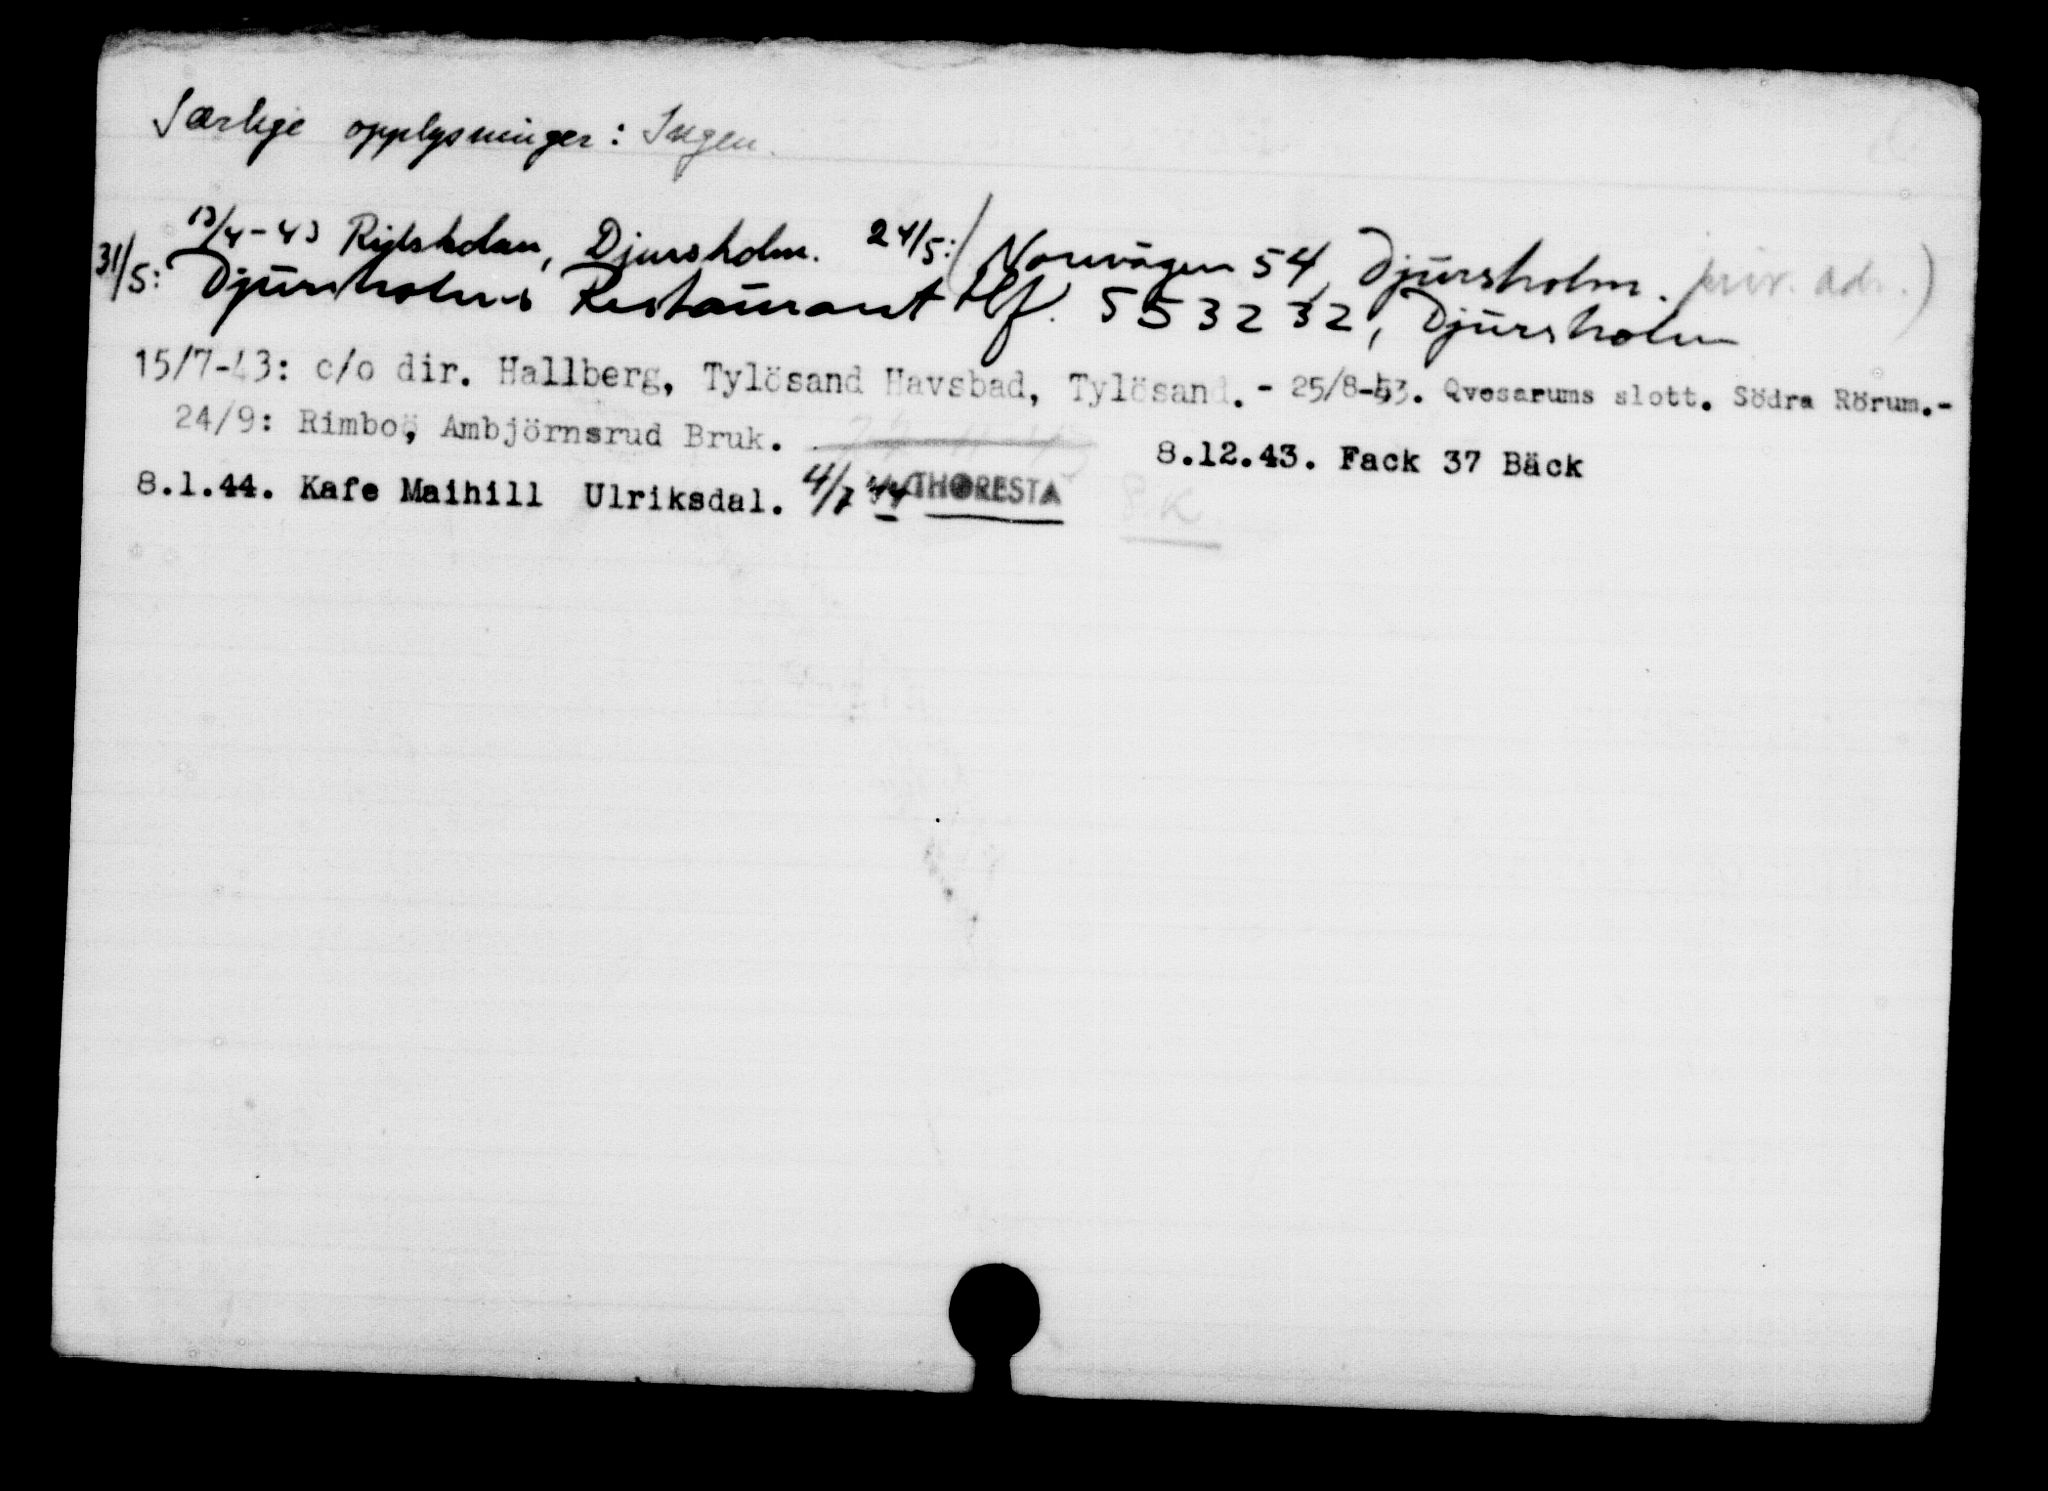 Særlige opplysninger: Ingen.
13/4-43 Djursholm. 24/5: (Norevägen 54, Djursholm. priv. adr.)
31/5: Djursholms Restaurant tlf. 553232, Djursholm
15/7-43: c/o dir. Hallberg, Tylösand Havsbad, Tylösand. - 25/8-43. Qvesarums slott. Södra Rörum.-
24/9: Rimbo, Ambjörnsrud Bruk. 8.12.43. Fack 37 Bäck
8.1.44. Kafe Maihill Ulriksdal. 4/7 44 THORESTA